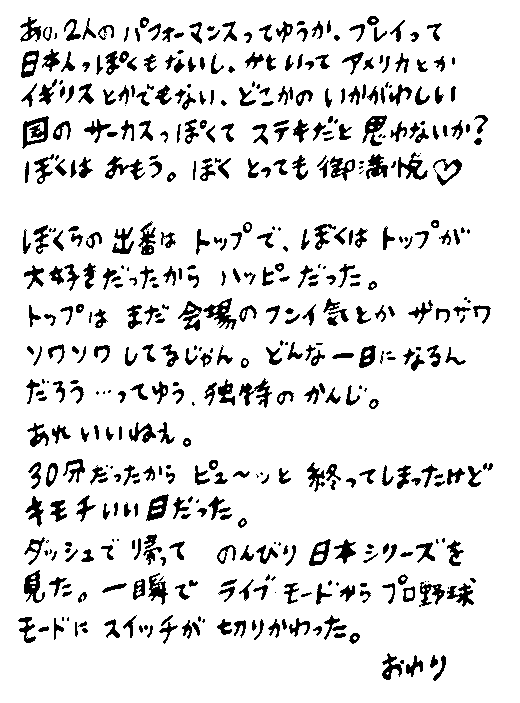 あの2人のパフォーマンスってゆうか、プレイって
日本人っぽくもないし、かといってアメリカとか
イギリスとかでもない、どこかのいかがわしい
国のサーカスっぽくてステキだと思わないか?
ぼくはおもう。ぼくとっても御満悦♡
ぼくらの出番はトップで、ぼくはトップが
大好きだったからハッピーだった。
トップはまだ会場のフンイ気とかザワザワ
ソワソワしてるじゃん。どんな一日になるん
だろう…ってゆう、独特のかんじ。
あれいいねぇ。
30分だったからピュ〜ッと終ってしまったけど
キモチいい日だった。
ダッシュで帰ってのんびり日本シリーズを
見た。一瞬でライブモードからプロ野球
モードにスイッチが切りかわった。
おわり